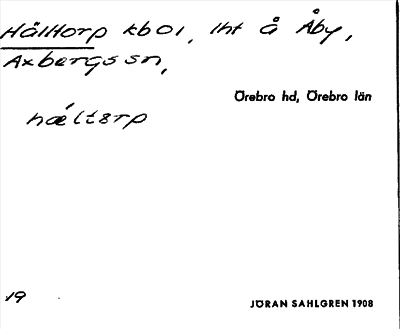 Hälltorp kb 01, lht å Åby,
Axbergs sn,
Örebro hd, Örebro län
hǽltɛrp
19
JÖRAN SAHLGREN 1908